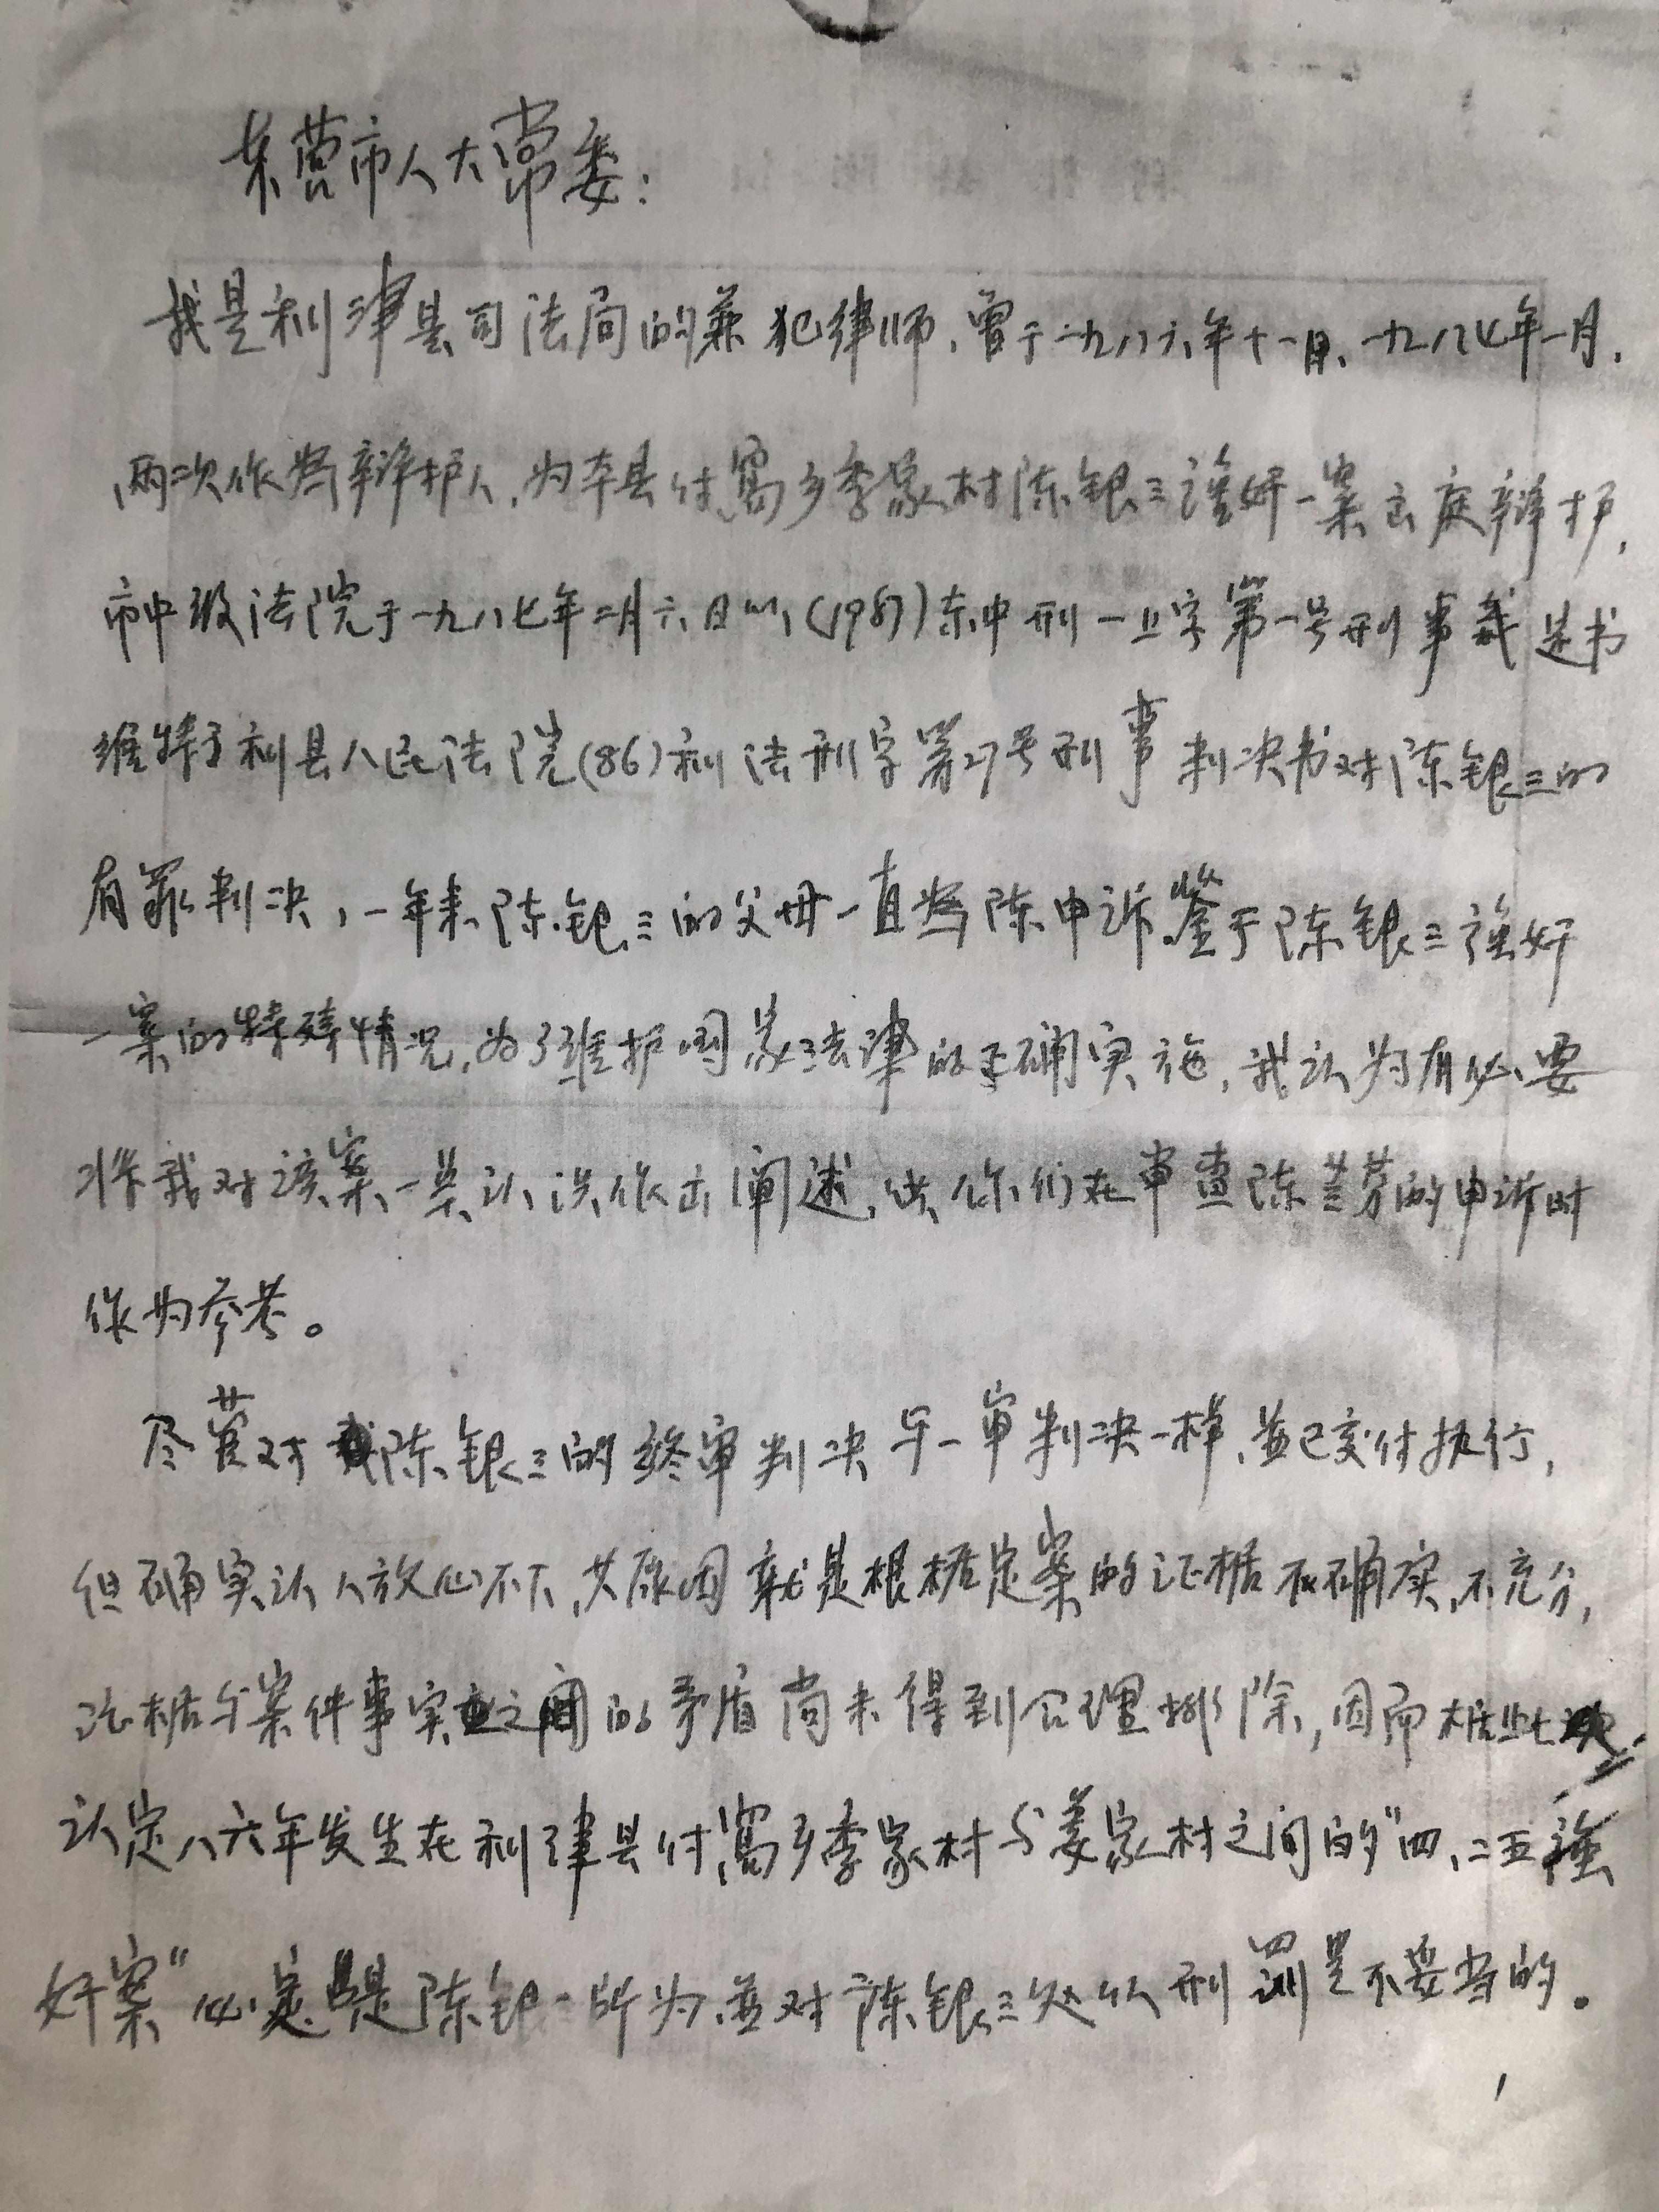 东营市人大常委：
我是利津县司法局的兼犯律师，曾于一九八六年十一月、一九八七年一月，
两次作为辩护人，为本县付窝乡李家村陈银三强奸一案出庭辩护，
市中级法院于一九八七年二月六日以（1987）东中刑一上字第一号刑事裁定书
维持了利县人民法院（86）利法刑字第27号刑事判决书对陈银三的
有罪判决，一年来陈银三的父母一直为陈申诉。鉴于陈银三强奸
一案的特殊情况，为了维护国家法律的正确实施，我认为有必要
将我对该案一些认识作出阐述，供你们在审查陈兰芬的申诉时
作为参考。
尽管对陈银三的终审判决与一审判决一样，并已交付执行，
但确实认人放心不下，其原因就是根据定案的证据不确实，不充分，
证据与案件事实之间的矛盾尚未得到合理排除，因而据此
认定八六年发生在利津县付窝乡李家村与姜家村之间的“四、二五强
奸案”必定是陈银三所为，并对陈银三处以刑罚是不妥当的。